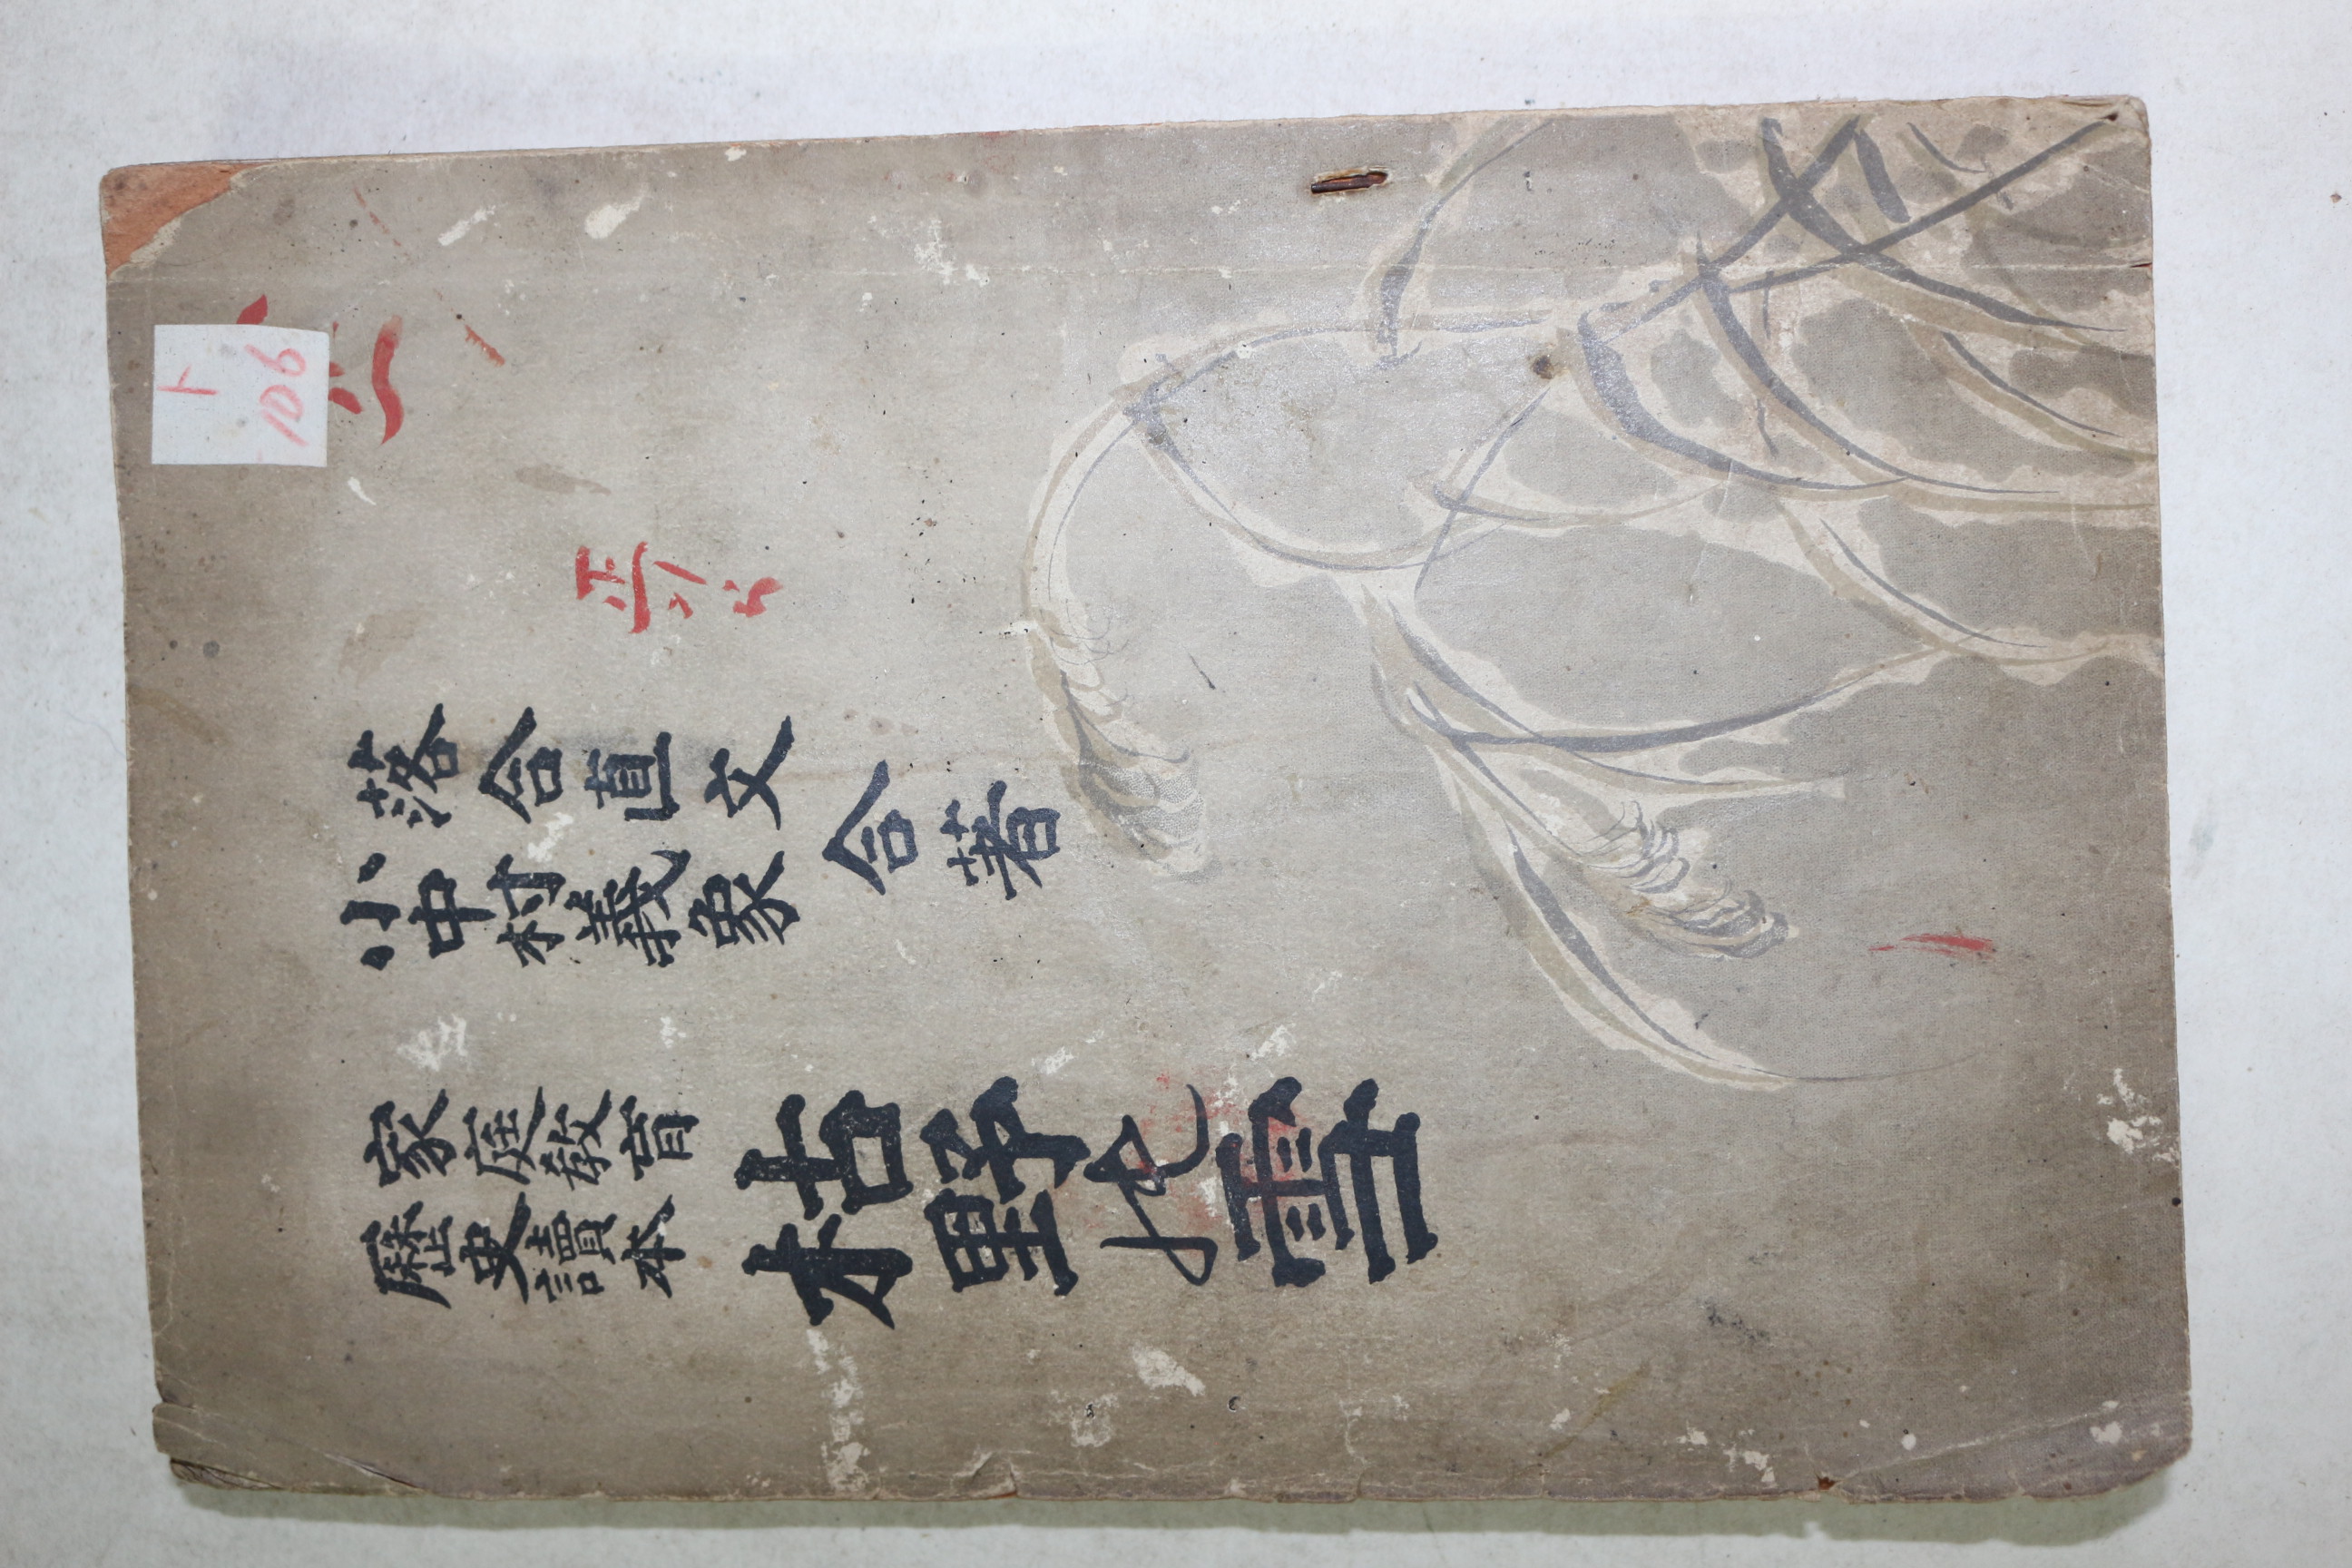 ト
106
落合直文
小中村義象
合著
家庭教育
歴史讀本
枯野乃雪